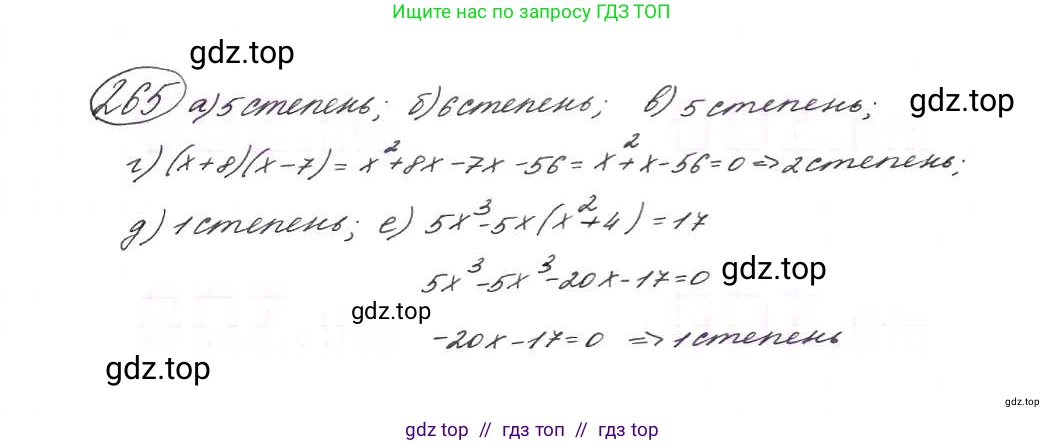 Ищите нас по запросу ГДЗ ТОП
gdz.top
265 а) 5 степень; б) 6 степень; в) 5 степень; gdz.top
г) (x+8)(x-7) = x²+8x-7x-56 = x²+x-56=0 => 2 степень;
д) 1 степень; е) 5x³-5x(x²+4)=17
5x³-5x³-20x-17=0 gdz.top
gdz.top
-20x-17=0 => 1 степень
gdz.top
gdz.top
gdz top // гдз топ // gdz top